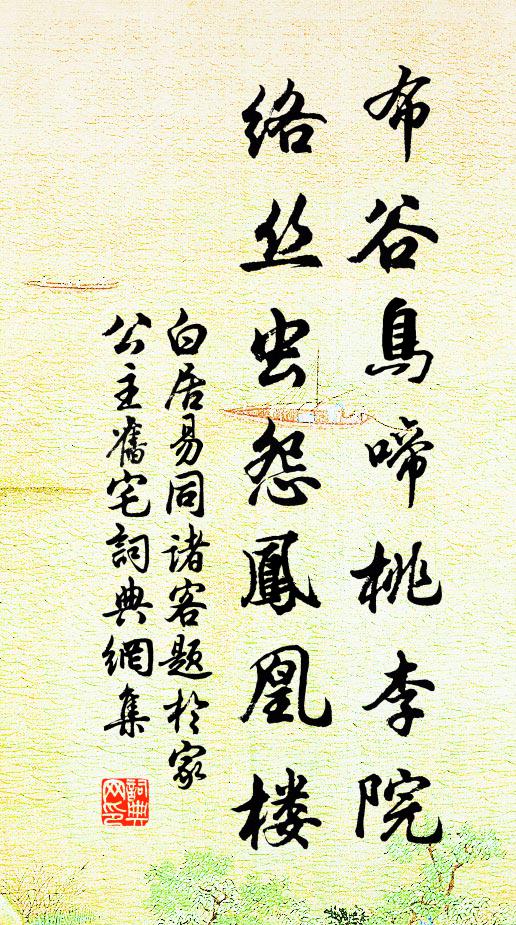 布谷鳥啼桃李院
络丝虫怨鳳凰楼
白居易同諸客题於家
公主舊宅詞典網集
詞典
网印